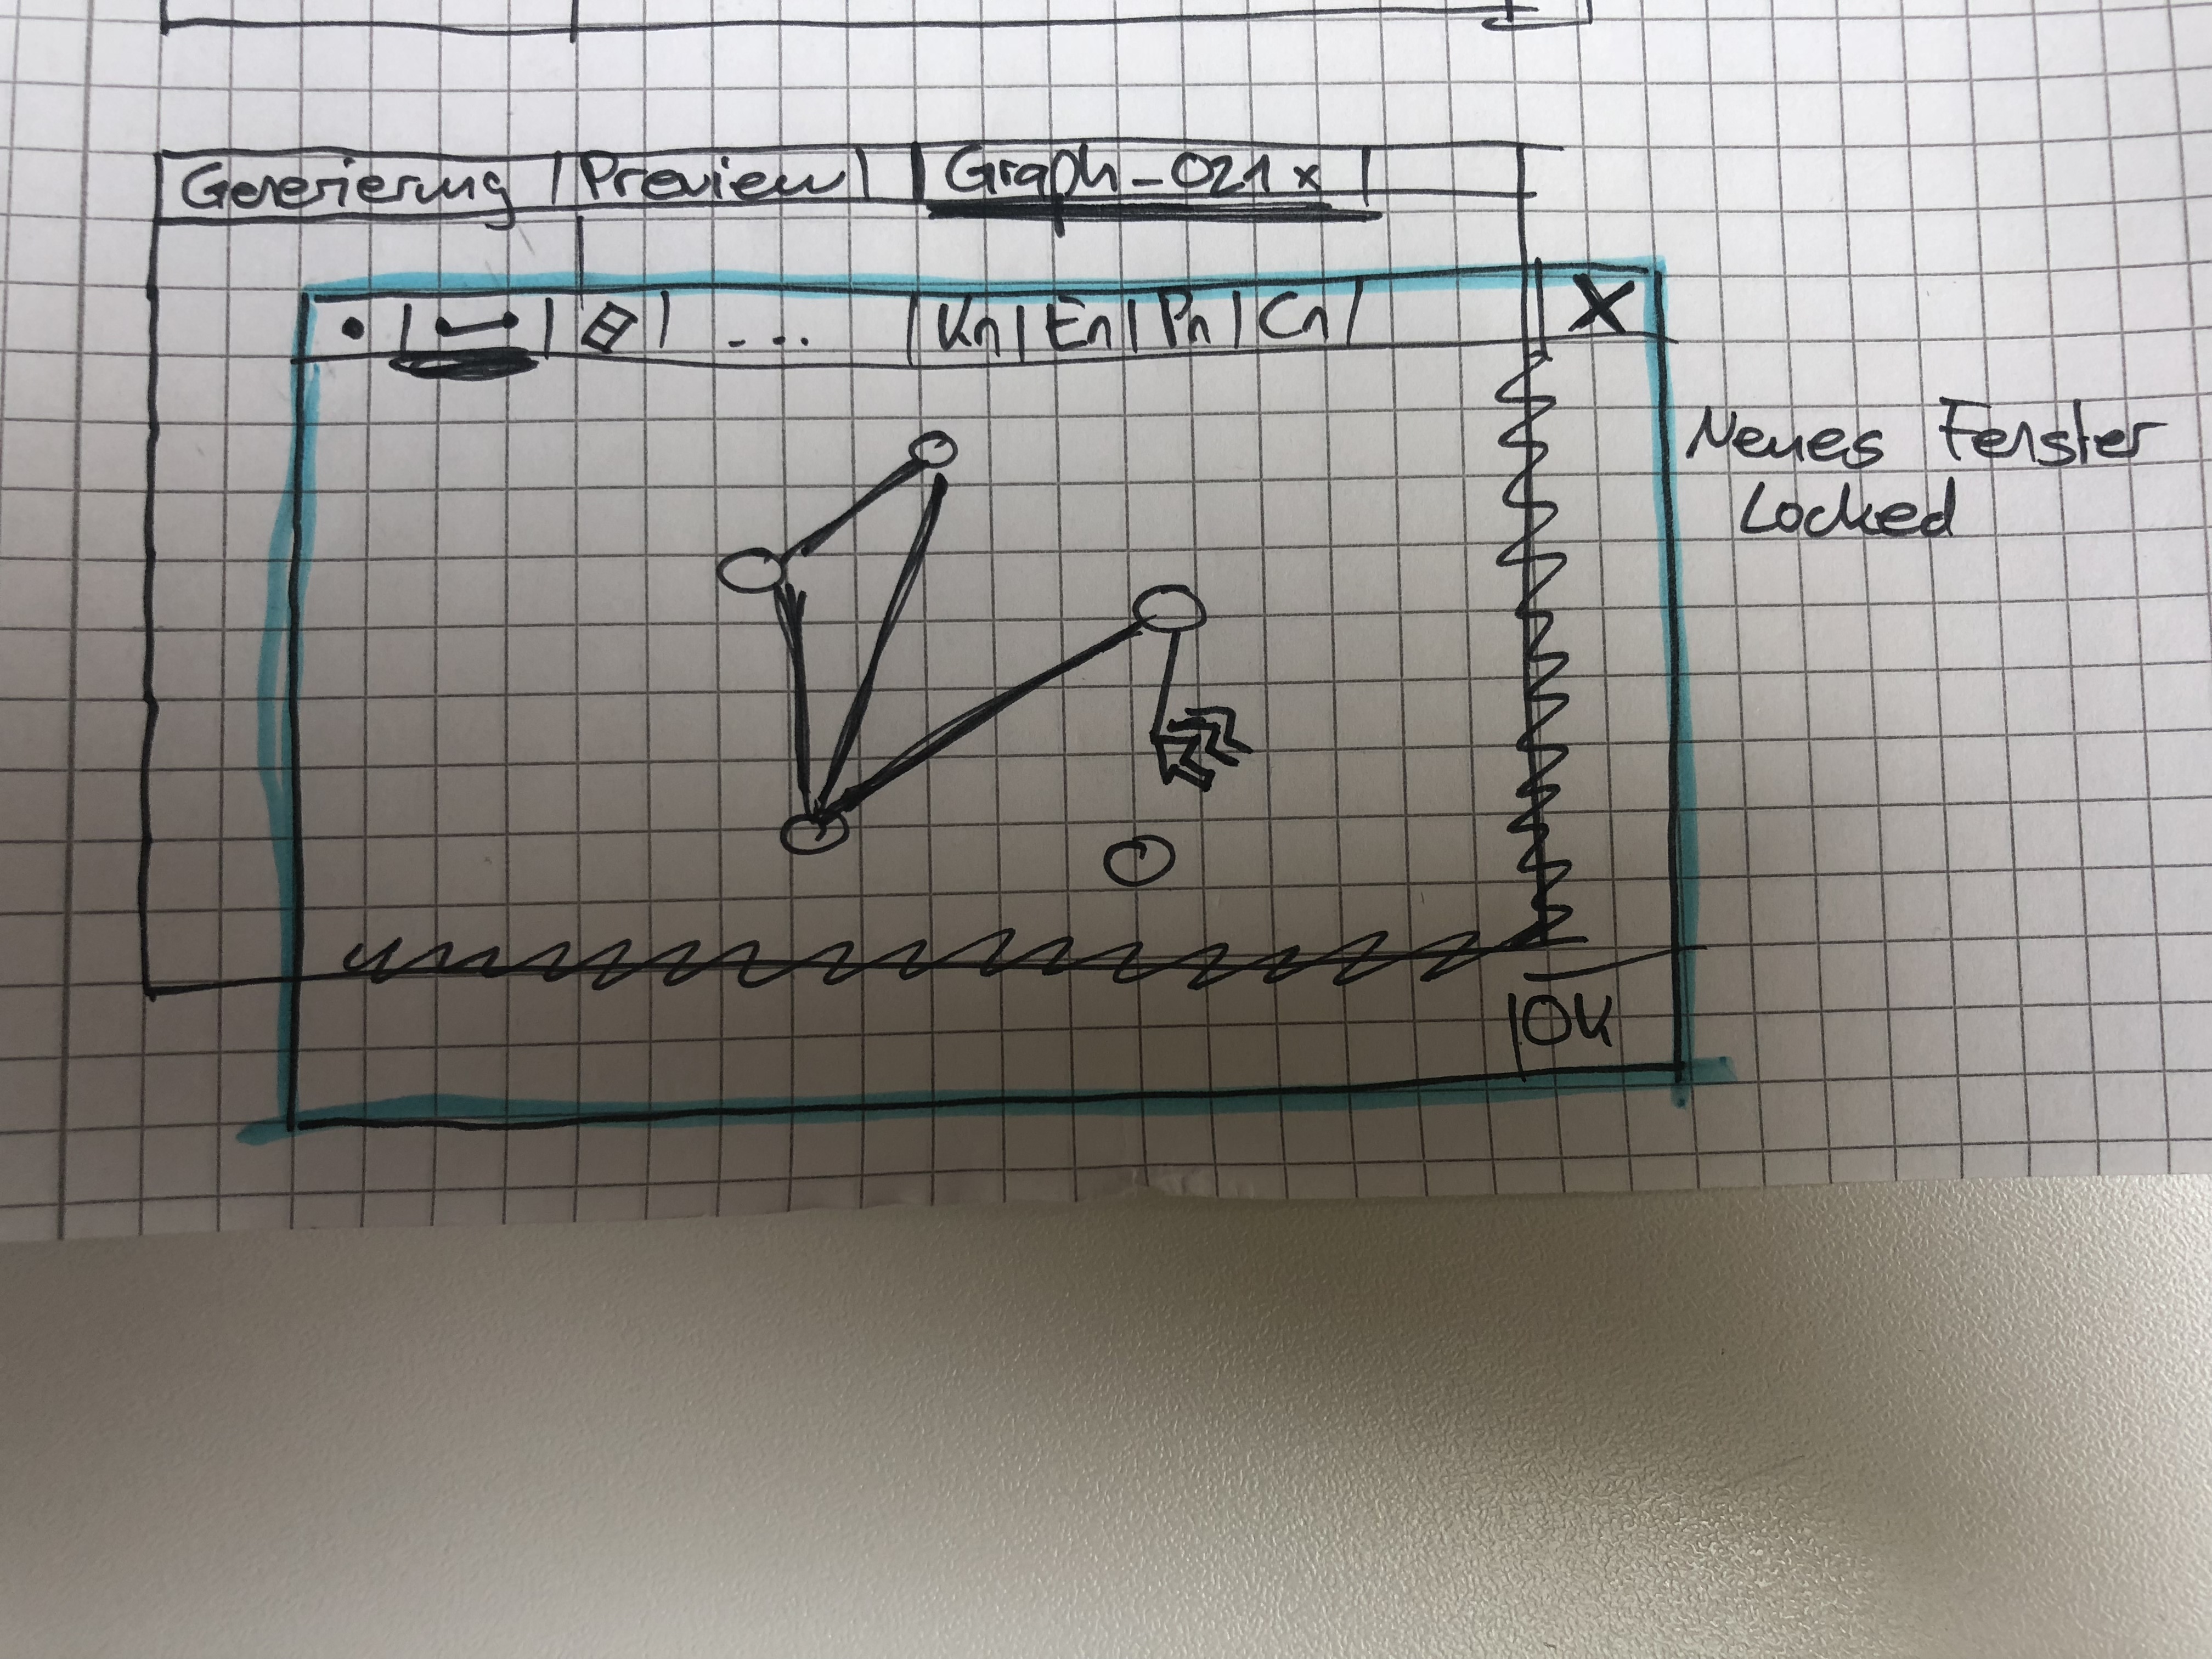 Generierung | Preview | Graph_021 x
... | Kn | En | Pn | Cn | X
Neues Fenster
Locked
OK